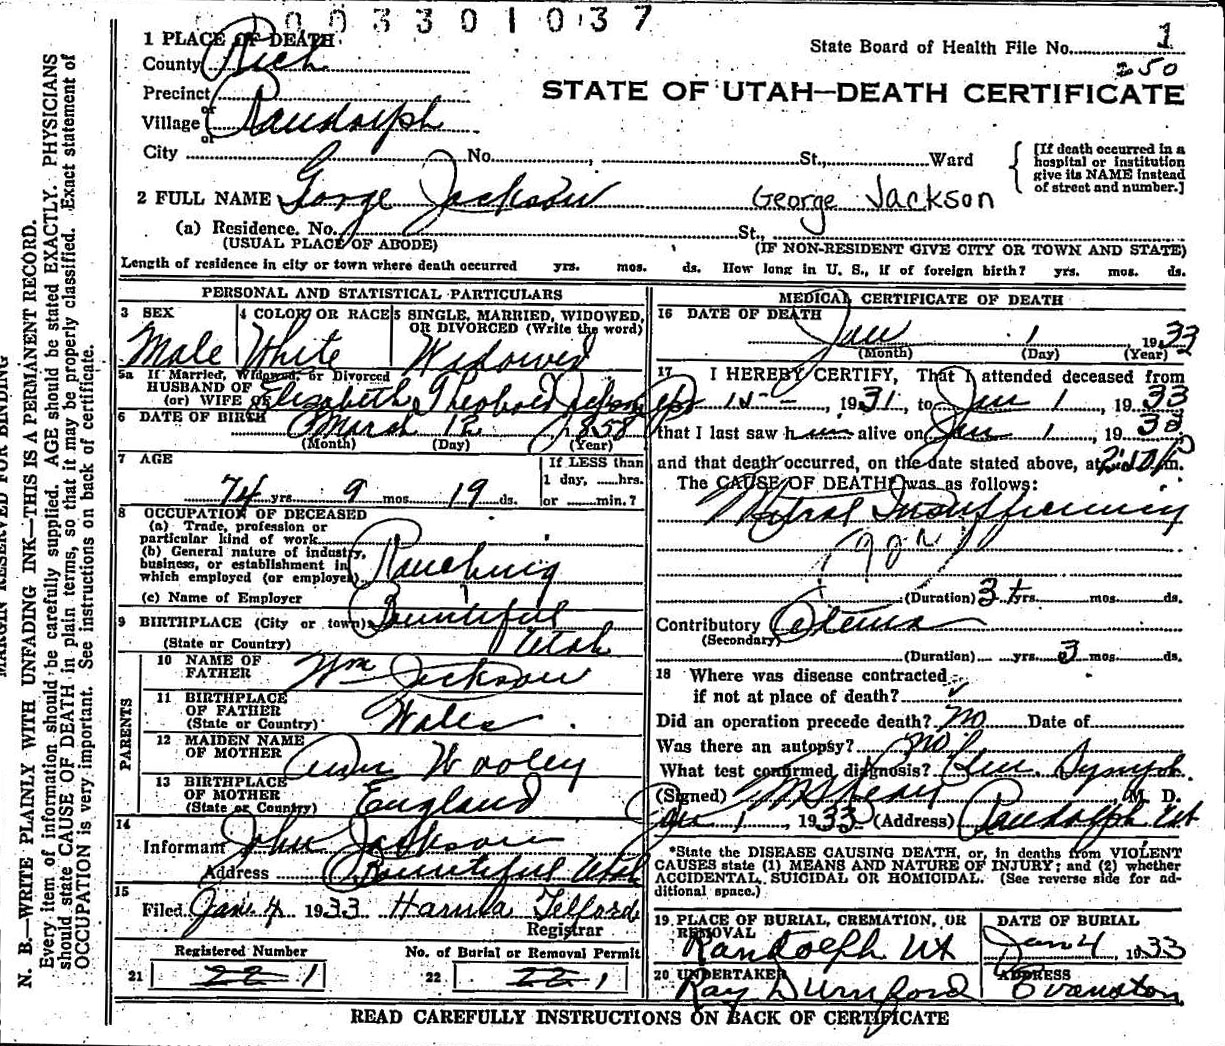 003301037
1 PLACE OF DEATH
County Rich
State Board of Health File No. 1
250
Precinct
or
Village Randolph
or
STATE OF UTAH—DEATH CERTIFICATE
City No. , St., Ward
[If death occurred in a hospital or institution give its NAME instead of street and number.]
2 FULL NAME George Jackson George Jackson
(a) Residence. No. St.,
(USUAL PLACE OF ABODE) (IF NON-RESIDENT GIVE CITY OR TOWN AND STATE)
Length of residence in city or town where death occurred yrs. mos. ds. How long in U. S., if of foreign birth? yrs. mos. ds.
PERSONAL AND STATISTICAL PARTICULARS
3 SEX 4 COLOR OR RACE 5 SINGLE, MARRIED, WIDOWED,
OR DIVORCED (Write the word)
Male White Widowed
5a If Married, Widowed, or Divorced
HUSBAND OF
(or) WIFE OF Elizabeth Theobold
6 DATE OF BIRTH March 12 1858
(Month) (Day) (Year)
7 AGE
If LESS than
1 day, hrs.
or min.?
74 yrs. 9 mos. 19 ds.
8 OCCUPATION OF DECEASED
(a) Trade, profession or
particular kind of work
(b) General nature of industry,
business, or establishment in
which employed (or employer) Ranching
(c) Name of Employer
9 BIRTHPLACE (City or town) Bountiful
(State or Country) Utah
PARENTS
10 NAME OF
FATHER Wm Jackson
11 BIRTHPLACE
OF FATHER
(State or Country) Wales
12 MAIDEN NAME
OF MOTHER Wooley
13 BIRTHPLACE
OF MOTHER
(State or Country) England
14
Informant John Jackson
Address Bountiful Utah
15
Filed Jan 4 1933 Telford
Registrar
Registered Number No. of Burial or Removal Permit
21 22 1 22 22 1
MEDICAL CERTIFICATE OF DEATH
16 DATE OF DEATH
Jan 1 1933
(Month) (Day) (Year)
17 I HEREBY CERTIFY, That I attended deceased from
15 , 1931, to Jan 1, 1933
that I last saw him alive on Jan 1, 19 33
and that death occurred, on the date stated above, at m.
The CAUSE OF DEATH was as follows:
Mitral Insufficiency
(Duration) 3 yrs. mos. ds.
Contributory
(Secondary)
(Duration) yrs. 3 mos. ds.
18 Where was disease contracted
if not at place of death?
Did an operation precede death? no Date of
Was there an autopsy? no
What test confirmed diagnosis?
(Signed) M. D.
Jan 1 1933 (Address) Randolph Ut
*State the DISEASE CAUSING DEATH, or, in deaths from VIOLENT
CAUSES state (1) MEANS AND NATURE OF INJURY; and (2) whether
ACCIDENTAL, SUICIDAL OR HOMICIDAL. (See reverse side for ad-
ditional space.)
19 PLACE OF BURIAL, CREMATION, OR
REMOVAL
Randolph Ut
DATE OF BURIAL
Jan 4, 1933
20 UNDERTAKER
Ray Durnford
ADDRESS
Evanston
READ CAREFULLY INSTRUCTIONS ON BACK OF CERTIFICATE
MARGIN RESERVED FOR BINDING
N. B.—WRITE PLAINLY WITH UNFADING INK—THIS IS A PERMANENT RECORD.
Every item of information should be carefully supplied. AGE should be stated EXACTLY. PHYSICIANS
should state CAUSE OF DEATH in plain terms, so that it may be properly classified. Exact statement of
OCCUPATION is very important. See instructions on back of certificate.